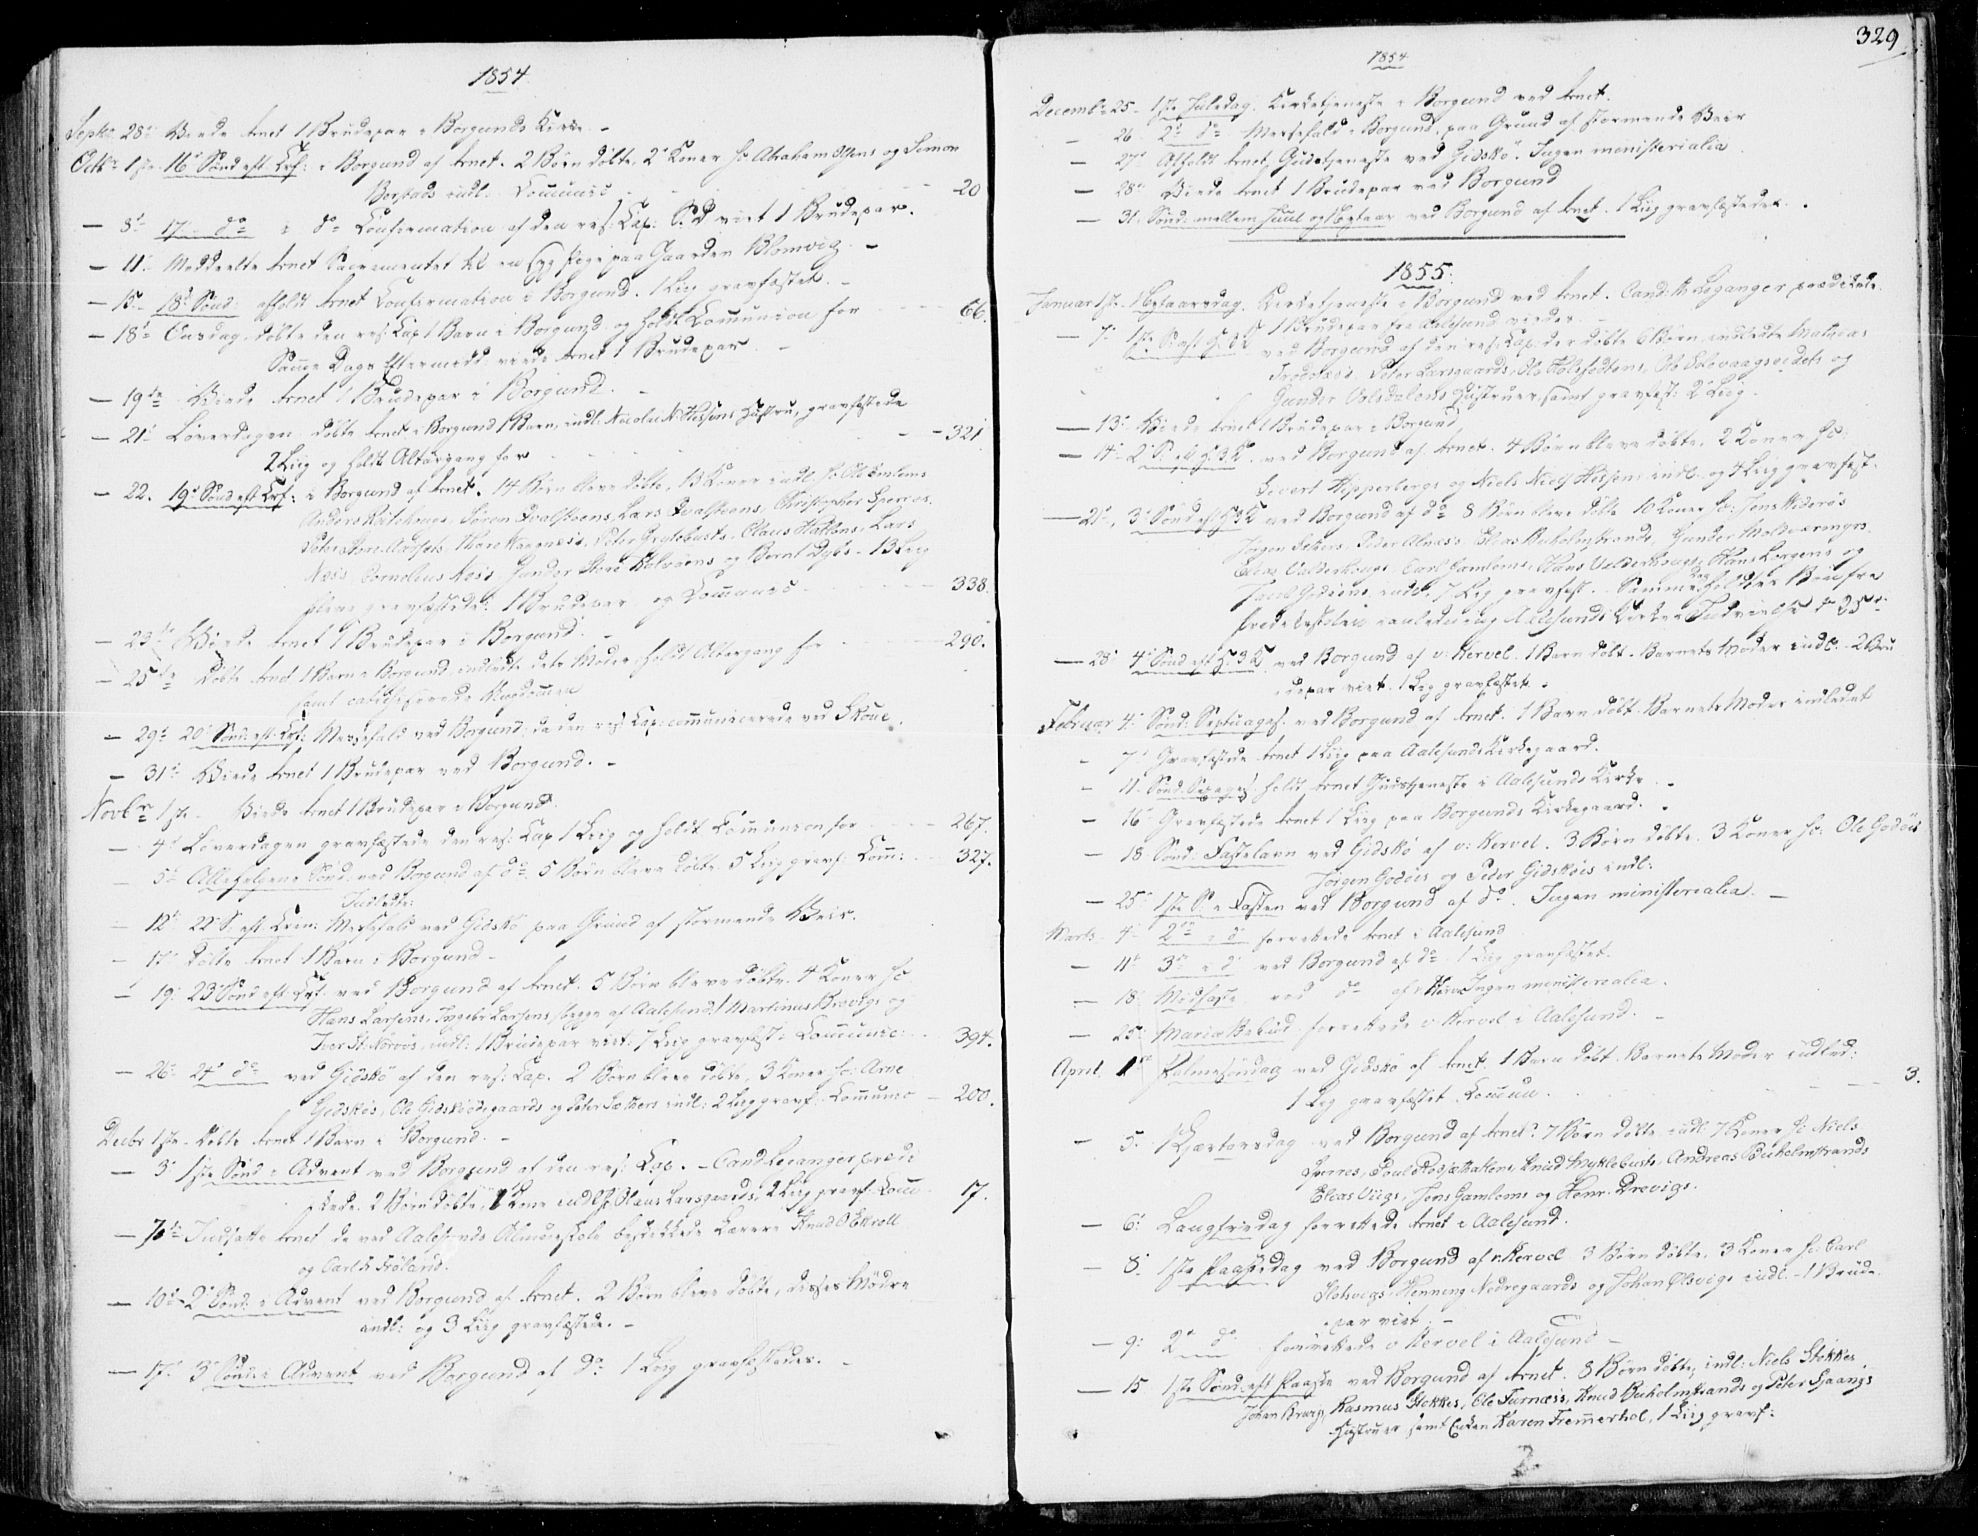 1854
Septbr 28de Viede Arnet 1 Brudepar i Borgunds Kirke. -
Octbr 1ste 16de Sønd eft Trf: i Borgund af Arnet. 2 Børn døbte, 2de Koner sc: Abraham Olsens og Simon
indl. Communic 20
- 8de 17de do i do Confirmation af den res: Cap: viet 1 Brudepar.
- 11te Meddeelte Arnet Sacramentet til en syg Pige paa Gaarden Blomvig. -
- 15de 18de Sønd: afholdt Arnet Confirmation i Borgund. 1 Liig gravfæstet. -
- 18de Onsdag døbte den res: Cap 1 Barn i Borgund og holdt Communion for 66.
Samme Dags Eftermidd: viede Arnet 1 Brudepar. -
- 19de Viede Arnet 1 Brudepar i Borgund. -
- 21de Løverdagen døbte Arnet i Borgund 1 Barn, indl: Nicolai N Hessens Hustru, gravfæstede
2 Liig og holdt Altargang for - 321
- 22. 19de Sønd eft Trf: i Borgund af Arnet. 14 Børn bleve døbte, 13 Koner indl. sc: Ole Emlems
Anders Søren Lars Christopher
Peter Thore Peter Claus Hattens, Lars
Næss, Cornelius Næss, Gunder Store Kalvøens og Bernt Dybs. 13 Liig
bleve gravfæstede: 1 Brudepar og Communic 338.
- 23de Viede Arnet 1 Brudepar i Borgund. -
- 25de Døbte Arnet 1 Barn i Borgund, indledte dets Moder, holdt Altargang for 290.
samt catechiserede Ungdommen
- 29de 20de Sønd: eft: Trf: Messefald ved Borgund, da den res: Cap: communicerede ved Skoue.
- 31te Viede Arnet 1 Brudepar ved Borgund. -
Novbr 1ste - Viede Arnet 1 Brudepar i Borgund.
- 4de Løverdagen gravfæstede den res: Cap 1 Liig og holdt Communion for 267.
- 5te Allehelgens Sønd: ved Borgund af do 5 Børn bleve døbte. 5 Liig gravf: Comm: 327.
- 12te 22 S. eft Trin: Messefald ved Gidskø paa Grund af stormende Veir.
- 17de Døbte Arnet 1 Barn i Borgund -
- 19: 23de Sønd eft: Trf. ved Borgund af Arnet. 5 Børn bleve døbte. 4 Koner sc:
Hans Larsens, Ingebr Larsens begge af Aalesund, Martinus Brevigs og
Iver St. Nørvøs, indl: 1 Brudepar viet: 7 Liig gravfæst: Communic: 394.
- 26: 24de do ved Gidskø af den res: Cap. 2 Børn bleve døbte, 3 Koner sc: Arne
Gidskøs, Ole Gidskøødegaards og Peter Sæthers indl: 2 Liig gravf: Communic 200.
Decbr 1ste Døbte Arnet 1 Barn i Borgund. -
- 3de 1ste Sønd i Advent ved Borgund af den res: Cap. - Cand Leganger prædi
kede. 2 Børn døbte, 1 Kone indl sc: Olaus Larsgaards, 2 Liig gravf: Com 17.
- 7de Indsatte Arnet de ved Aalesunds Almueskole beskikkede Lærere Knud O Ekroll
og Carl Frøland.
- 10de 2de Sønd i Advent ved Borgund af Arnet. 2 Børn bleve døbte, disses Mødre
indl: og 3 Liig gravfæstede. -
- 17de 3de Sønd i Advent ved Borgund af do 1 Liig gravfæstedes. -
329
1854
Decembr 25. 1ste Juledag. Kirketjeneste i Borgund ved Arnet.
- 26 2de do Messefald i Borgund, paa Grund af stormende Veir
- 27de Afholdt Arnet Gudstjeneste ved Gidskø. Ingen ministerialia
- 28de Viede Arnet 1 Brudepar ved Borgund
- 31. Sønd: mellem Juul og Nytaar ved Borgund af Arnet. 1 Liig gravfæstedes.
1855.
Januar 1ste. Nytaarsdag. Kirketjeneste i Borgund ved Arnet. Cand: Th. Leganger prædikede.
1 Brudepar fra Aalesund viedes. -
- 7de 1ste S. eft H 3 K ved Borgund af den res: Cap: der døbte 6 Børn, indledte Mathias
Peter Larsgaards, Ole Ole Eidsvaagseidets og
Gunder Hustruer samt gravfæst: 2de Liig.
- 13de Viede Arnet 1 Brudepar i Borgund
- 14de 2de S. eft H 3 K. ved Borgund af Arnet. 4 Børn bleve døbte, 2 Koner sc:
Sivert Hipperbergs og Niels Niels Hessens indl. og 4 Liig gravfæst.
- 21de, 3de Sønd eft H 3 K ved Borgund af do 8 Børn bleve døbte 10 Koner sc: Jens
Jørgen Peder Alnæs, Elias Buholmstrands, Gunder
Elias Valderhougs, Carl Gamlems, Hans Valderhougs, Hans Lorgens og
Jacob indl, 7 Liig gravfæst. Samme Dag holdtes Bøn fra
Prædikestolen i anledning Aalesunds Kirkes Indvielse d. 25de
- 28de 4de Sønd eft H. 3 K ved Borgund af v: Kervel. 1 Barn døbt. Barnets Moder indl. 2 Bru
depar viet. 1 Liig gravfæstet.
Februar 4de Sønd: Septuages. ved Borgund af Arnet. 1 Barn døbt. Barnets Moder indledet
- 7de Gravfæstede Arnet 1 Liig paa Aalesunds Kirkegaard.
- 11. Sønd Sexages: holdt Arnet Gudstjeneste i Aalesunds Kirke -
- 16de Gravfæstede Arnet 1 Liig paa Borgunds Kirkegaard. -
- 18 Sønd: Fastelavn ved Gidskø af v: Kervel. 3 Børn døbte. 3 Koner sc: Ole Godøes
Jørgen Godøes og Peder Gidskøes indl:
- 25de 1ste S. i Fasten ved Borgund af do. Ingen ministerialia. -
Marts 4de 2de i do forrettede Arnet i Aalesund
- 11te 3de i do ved Borgund af do 1 Liig gravfæstet.
- 18: Midfaste ved do af v: Kervel Ingen ministerialia.
- 25: Mariæ Bebud: forrettede v: Kervel i Aalesund. -
April. 1ste Palmesøndag ved Gidskø af Arnet. 1 Barn døbt. Barnets Moder indled:
1 Liig gravfæstet. Commun. 3.
- 5. Skjærtorsdag ved Borgund af Arnet. 7 Børn døbte indl: 7 Koner sc: Niels
Poul Knud Myklebusts, Andreas Buholmstrands
Elias Viigs, Jens Gamlems og Henr. Brevigs.
- 6te Langfredag forrettede Arnet i Aalesund.
- 8. 1ste Paaskedag ved Borgund af v: Kervel 3 Børn døbte, 3 Koner sc: Carl
Slotsvigs, Henning Nedregaards og Johan Olsvigs indl. 1 Brude-
par viet. -
- 9: 2de do forrettede v: Kervel i Aalesund -
- 15 1ste Sønd: eft Paaske ved Borgund af Arnet. 8 Børn døbte, indl: Niels Stokkes
Johan Rasmus Stokkes, Ole Furnæss, Knud Buholmstrands og Peter Spaangs
Hustruer samt Enken Karen Fremmerhol, 1 Liig gravf: